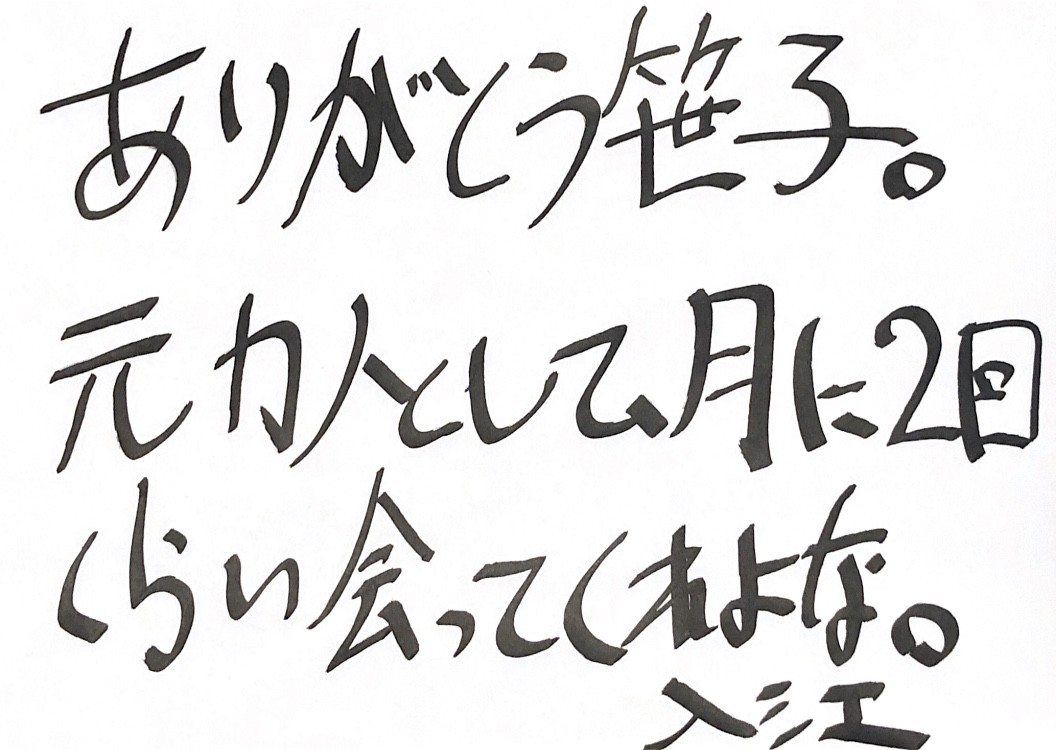 ありがとう笹子。
元カノとして、月に2回
くらい会ってくれよな。
入江